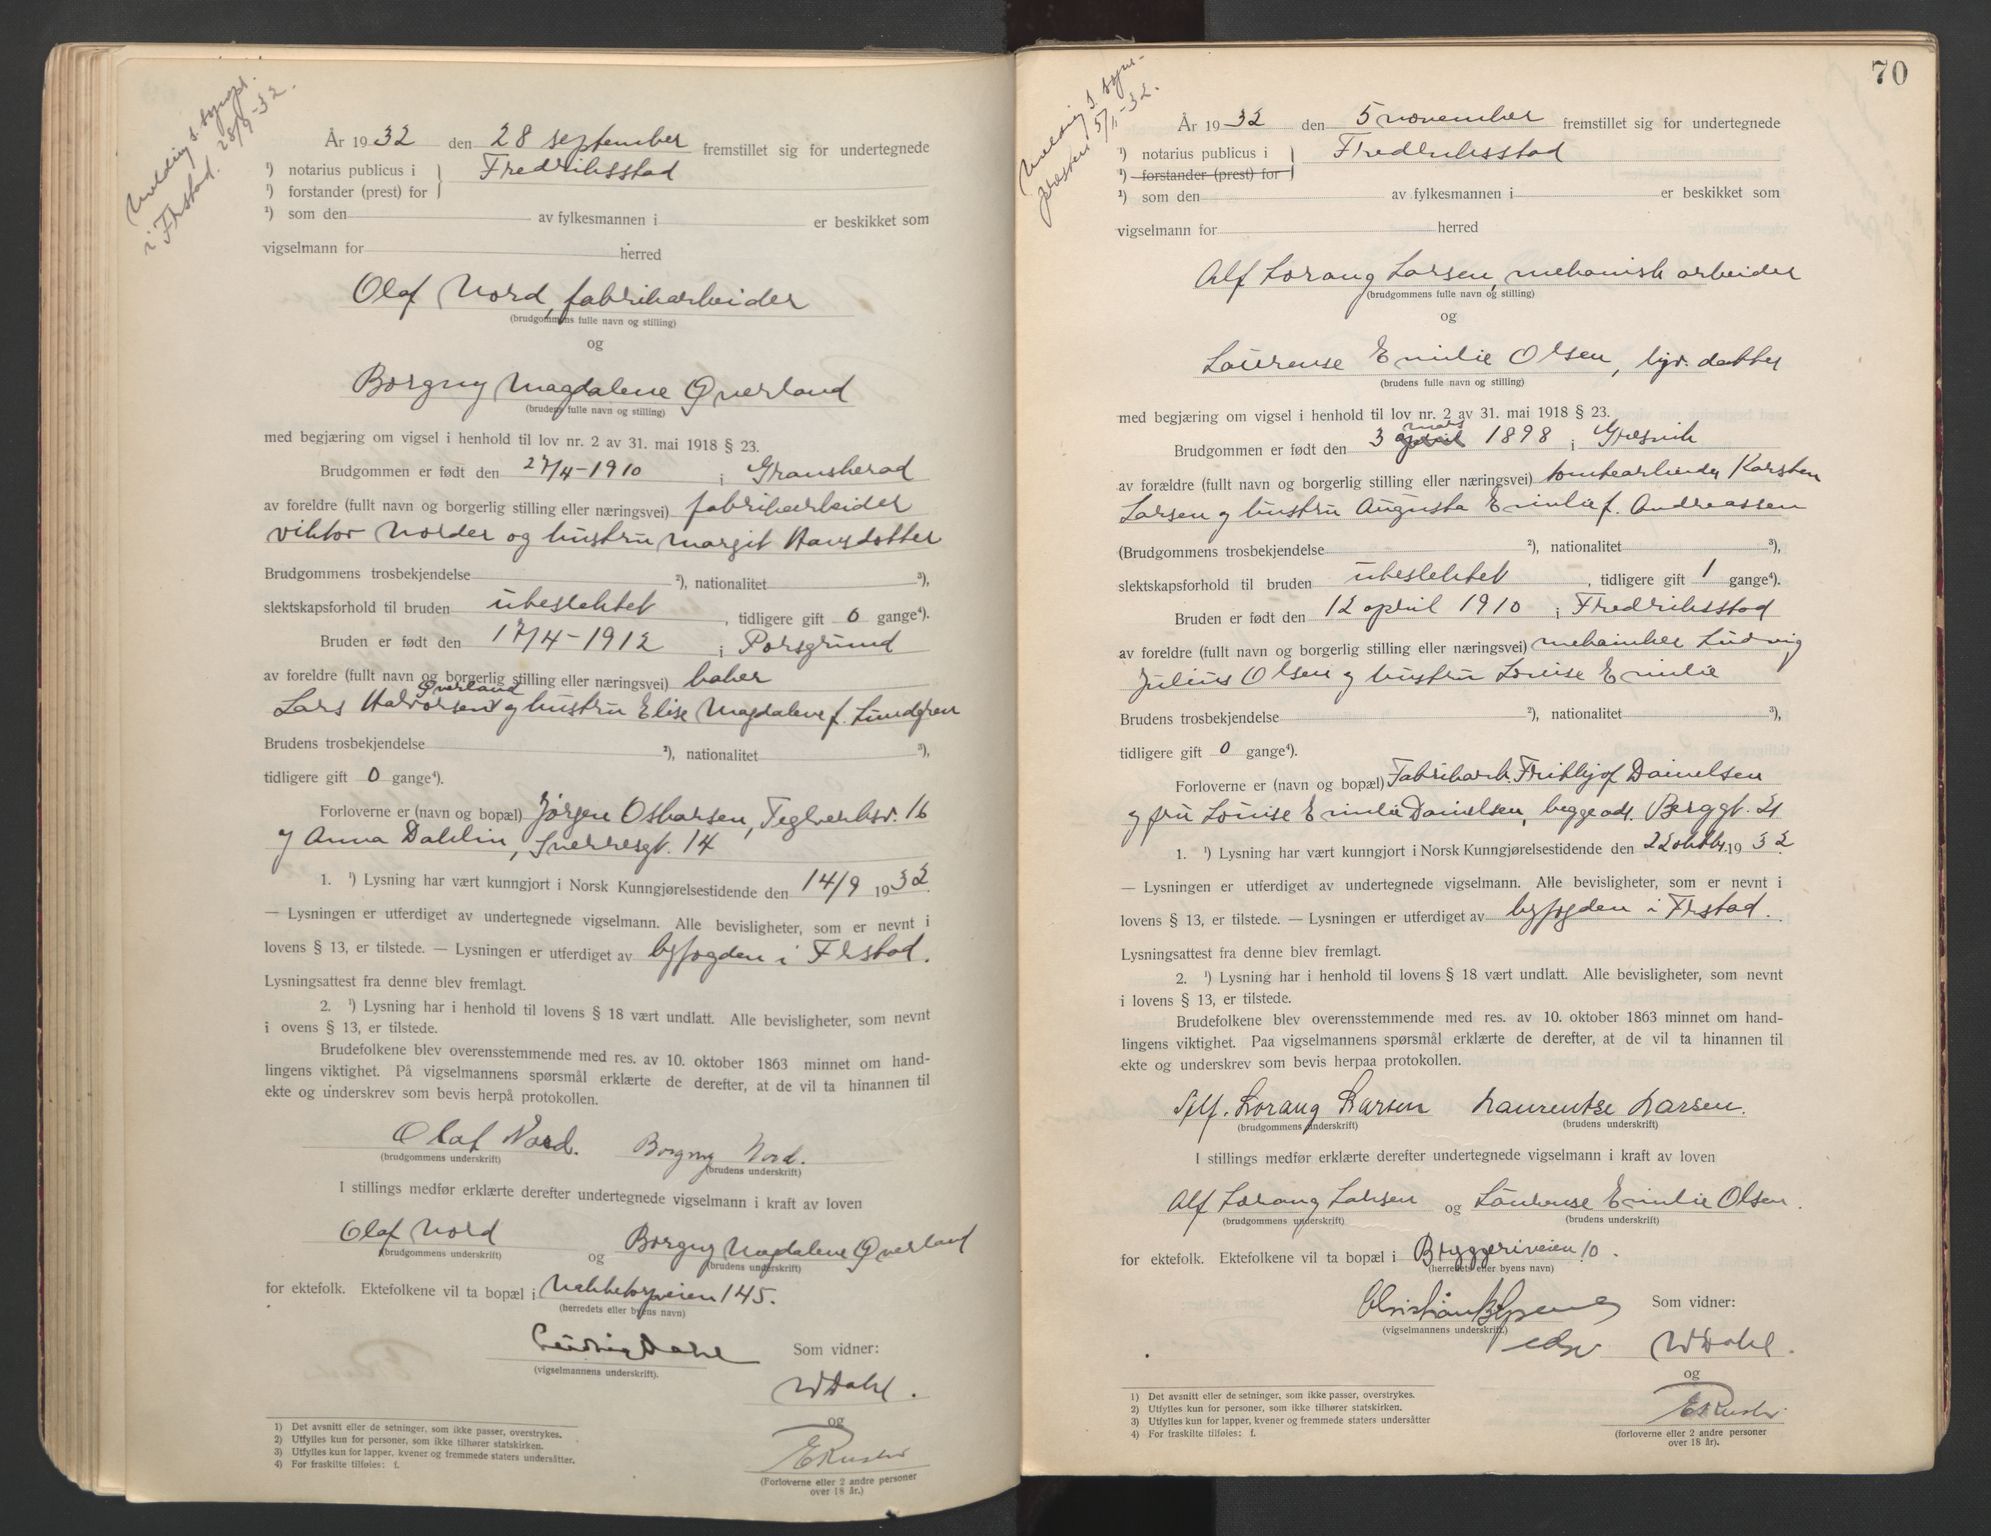 Melding s. synpr.
i Frstad. 28/9-32.
År 1932 den 28 september fremstillet sig for undertegnede
¹) notarius publicus i } Fredriksstad
¹) forstander (prest) for }
¹) som den av fylkesmannen i er beskikket som
vigselmann for herred
Olaf Nord, fabrikarbeider
(brudgommens fulle navn og stilling)
og
Borgny Magdalene Øverland
(brudens fulle navn og stilling)
med begjæring om vigsel i henhold til lov nr. 2 av 31. mai 1918 § 23.
Brudgommen er født den 27/4-1910 i Gransherad
av foreldre (fullt navn og borgerlig stilling eller næringsvei) fabrikarbeider
Viktor Norder og hustru Margit Hansdatter
Brudgommens trosbekjendelse ²), nationalitet ³),
slektskapsforhold til bruden ubeslektet, tidligere gift 0 gange⁴).
Bruden er født den 17/4-1912 i Porsgrund
av foreldre (fullt navn og borgerlig stilling eller næringsvei) baker
Lars Halvorsen Øverland og hustru Elise Magdalene f. Lundgren
Brudens trosbekjendelse ²), nationalitet ³),
tidligere gift 0 gange⁴).
Forloverne er (navn og bopæl) Jørgen Oskarsen, Teglverksv. 16
og Anna Dahlin, Sverresgt. 14
1. ¹) Lysning har vært kunngjort i Norsk Kunngjørelsestidende den 14/9 1932.
— Lysningen er utferdiget av undertegnede vigselmann. Alle bevisligheter, som er nevnt i
lovens § 13, er tilstede. — Lysningen er utferdiget av byfogden i Frstad.
Lysningsattest fra denne blev fremlagt.
2. ¹) Lysning har i henhold til lovens § 18 vært undlatt. Alle bevisligheter, som nevnt
i ovens § 13, er tilstede.
Brudefolkene blev overensstemmende med res. av 10. oktober 1863 minnet om hand-
lingens viktighet. På vigselmannens spørsmål erklærte de derefter, at de vil ta hinannen til
ekte og underskrev som bevis herpå protokollen.
Olaf Nord. Borgny Nord.
(brudgommens underskrift) (brudens underskrift)
I stillings medfør erklærte derefter undertegnede vigselmann i kraft av loven
Olaf Nord og Borgny Magdalene Øverland
(brudgommens underskrift) (brudens underskrift)
for ektefolk. Ektefolkene vil ta bopæl i Nabbetorpveien 145.
(herredets eller byens navn)
Ludvig Dahl Som vidner:
(vigselmannens underskrift).
W Dahl.
og
E Ruster
(Forloverne eller 2 andre personer
over 18 år.)
1) Det avsnitt eller de setninger, som ikke passer, overstrykes.
2) Utfylles kun for personer, som ikke tilhører statskirken.
3) Utfylles kun for lapper, kvener og fremmede staters undersåtter.
4) For fraskilte tilføies: f.
70
Melding s. syns-
presten 5/11-32.
År 1932 den 5 november fremstillet sig for undertegnede
¹) notarius publicus i } Fredriksstad
¹) forstander (prest) for }
¹) som den av fylkesmannen i er beskikket som
vigselmann for herred
Alf Lorang Larsen, mekanisk arbeider
(brudgommens fulle navn og stilling)
og
Laurense Emilie Olsen, hjv. datter
(brudens fulle navn og stilling)
med begjæring om vigsel i henhold til lov nr. 2 av 31. mai 1918 § 23.
Brudgommen er født den 3 april mars 1898 i Gresvik
av forældre (fullt navn og borgerlig stilling eller næringsvei) tomtearbeider Karsten
Larsen og hustru Augusta Emilie f. Andreassen
(Brudgommens trosbekjendelse ²), nationalitet ³),
slektskapsforhold til bruden ubeslektet, tidligere gift 1 gange⁴).
Bruden er født den 12 april 1910 i Fredriksstad
av foreldre (fullt navn og borgerlig stilling eller næringsvei) mekaniker Ludvig
Julius Olsen og hustru Louise Emilie
Brudens trosbekjendelse ²), nationalitet ³),
tidligere gift 0 gange⁴).
Forloverne er (navn og bopæl) Fabrikarb. Frithjof Danielsen
og fru Louise Emilie Danielsen, begge adr. Berggt. 21
1. ¹) Lysning har vært kunngjort i Norsk Kunngjørelsestidende den 22 oktbr. 1932
— Lysningen er utferdiget av undertegnede vigselmann. Alle bevisligheter, som er nevnt i
lovens § 13, er tilstede. — Lysningen er utferdiget av byfogden i Frstad.
Lysningsattest fra denne blev fremlagt.
2. ¹) Lysning har i henhold til lovens § 18 vært undlatt. Alle bevisligheter, som nevnt
i lovens § 13, er tilstede.
Brudefolkene blev overensstemmende med res. av 10. oktober 1863 minnet om hand-
lingens viktighet. Paa vigselmannens spørsmål erklærte de derefter, at de vil ta hinannen til
ekte og underskrev som bevis herpaa protokollen.
Alf. Lorang Larsen Laurentse Larsen.
(brudgommens underskrift) (brudens underskrift)
I stillings medfør erklærte derefter undertegnede vigselmann i kraft av loven
Alf Lorang Larsen og Laurense Emilie Olsen.
(brudgommens underskrift) (brudens underskrift)
for ektefolk. Ektefolkene vil ta bopæl i Bryggeriveien 10.
(herredets eller byens navn)
Som vidner:
(vigselmannens underskrift.)
W Dahl.
og
E Ruster
(forloverne eller 2 andre personer
over 18 år).
1) Det avsnitt eller de setninger, som ikke passer, overstrykes.
2) Utfylles kun for personer, som ikke tilhører statskirken.
3) Utfylles kun for lapper, kvener og fremmede staters undersåtter
4) For fraskilte tilføies: f.